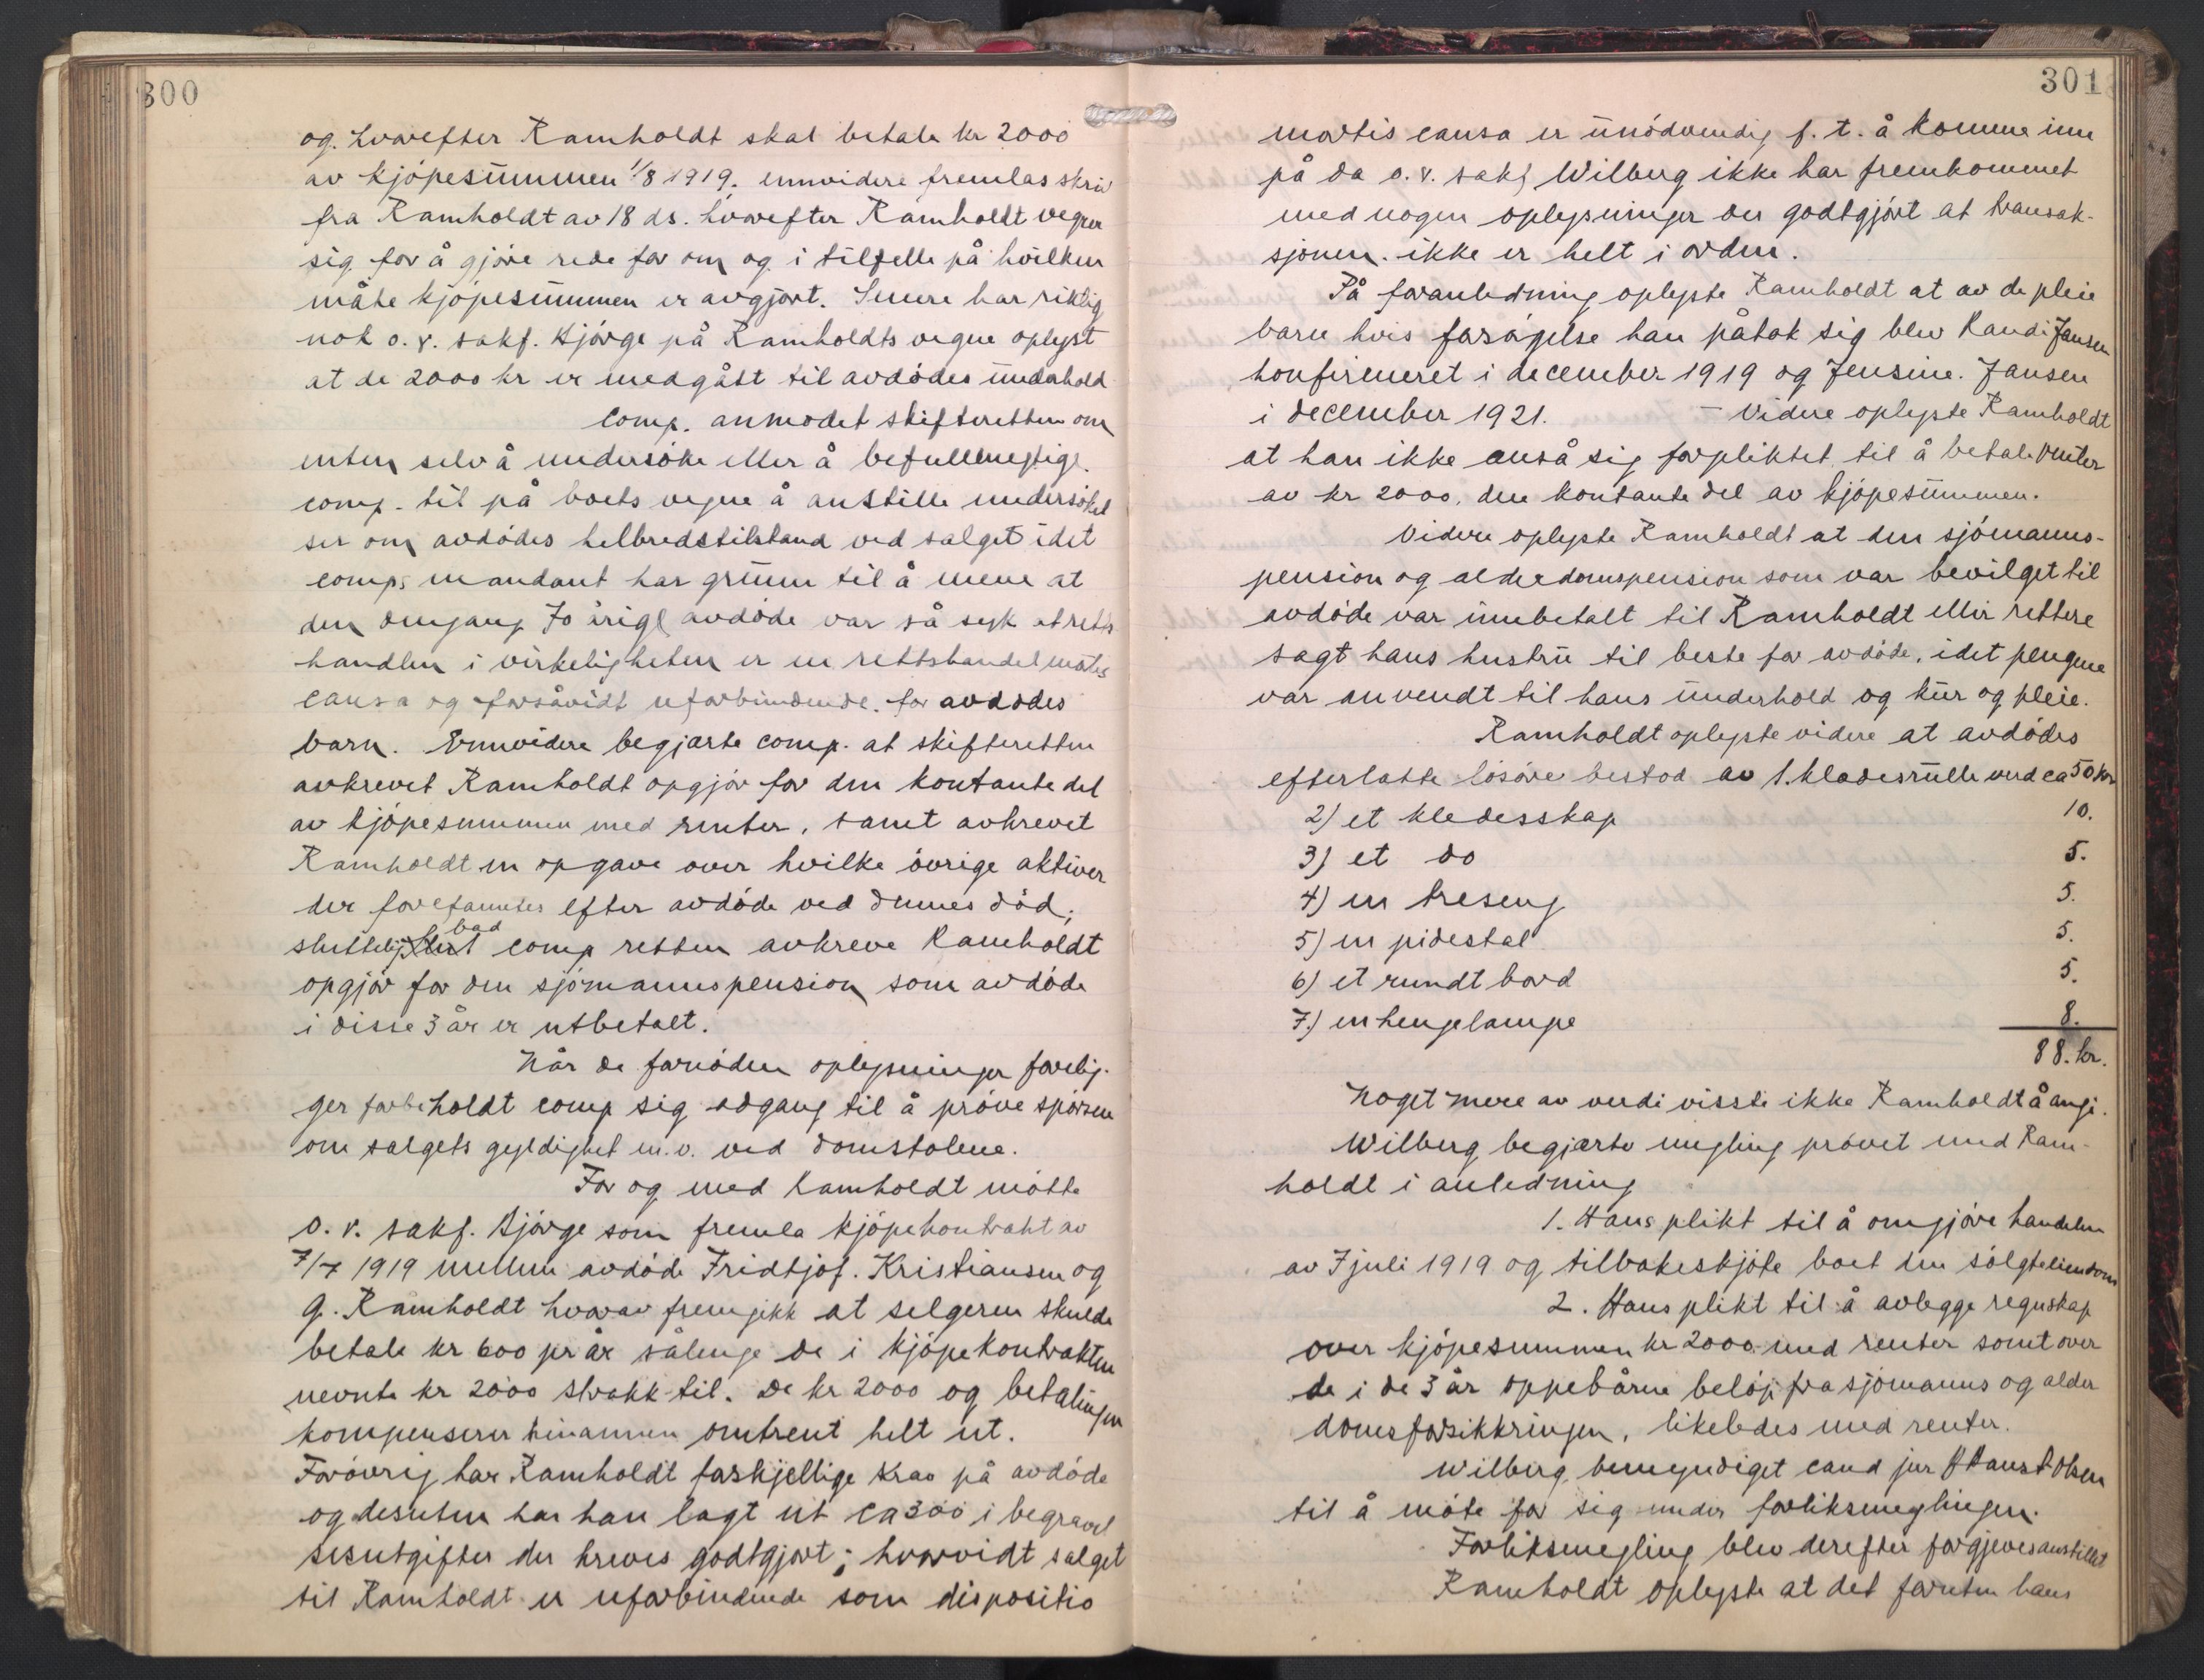 300
og hvorefter Ramholdt skal betale kr 2000
av kjöpesummen 1/8 1919. ennvidere fremlas skriv
fra Ramholdt av 18 ds. hvorefter Ramholdt vegrer
sig for å gjöre rede for om og i tilfelle på hvilken
måte kjöpesummen er avgjort. Senere har riktig
nok o.r. sakf. Bjórge på Ramholdts vegne oplyst
at de 2000 kr er medgått til avdödes underhold
Comp. anmodet skifteretten om
enten selv å undersöke eller å befullmegtige
comp. til på boets vegne å anstille undersökel
ser om avdödes helbredstilstand ved salget idet
comps mandant har grunn til å mene at
den omgang 70 årige avdöde var så syk at retts
handlen i virkeligheten er en rettshandel mortis
causa og forsåvidt uforbindende for avdödes
barn. Ennvidere begjærte comp. at skifteretten
avkrevet Ramholdt opgjör for den kontante del
av kjöpesummen med renter, samt avkrevet
Ramholdt en opgave over hvilke övrige aktiver
der forefantes efter avdöde ved dennes död;
sluttelig bad comp retten avkreve Ramholdt
opgjör for den sjömannspension som avdöde
i disse 3 år er utbetalt.
Når de fornödne oplysninger forelig-
ger forbeholdt comp sig adgang til å pröve spörsm
om salgets gyldighet m.v. ved domstolene.
For og med Ramholdt mötte
o.r. sakf. Bjórge som fremla kjöpekontrakt av
7/7 1919 mellem avdöde Fridtjof Kristiansen og
G. Ramholdt hvorav fremgikk at selgeren skulde
betale kr 600 pr år sålenge de i kjöpekontrakten
nevnte kr 2000 strakk til. De kr 2000 og betalingen
kompenserer hinannen omtrent helt ut.
Forövrig har Ramholdt forskjellige krav på avdöde
og desuten har han lagt ut ca 300 i begravel
sesutgifter der kreves godtgjort; hvorvidt salget
til Ramholdt er uforbindende som dispositio
301
mortis causa er unödvendig f.t. å komme inn
på da o.r. sakf Wilberg ikke har fremkommet
med nogen oplysninger der godtgjört at transak-
sjonen ikke er helt i orden.
På foranledning oplyste Ramholdt at av de pleie
barn hvis forsörgelse han påtok sig blev Randi Jansen
konfirmeret i december 1919 og Jensine Jansen
i december 1921. – Videre oplyste Ramholdt
at han ikke anså sig forpliktet til å betale renter
av kr 2000, den kontante del av kjöpesummen.
Videre oplyste Ramholdt at den sjömanns-
pension og alderdomspension som var bevilget til
avdöde var innbetalt til Ramholdt eller rettere
sagt hans hustru til beste for avdöde, idet pengene
var anvendt til hans underhold og kur og pleie.
Ramholdt oplyste videre at avdödes
efterlatte lösöre bestod av 1. kladesrulle verd ca 50 kr
2) et kledesskap 10.
3) et do 5.
4) en treseng 5.
5) en pidestal 5.
6) et rundt bord 5.
7.) en hengelampe 8.
88. kr.
Noget mere av verdi visste ikke Ramholdt å angi.
Wilberg begjærte megling prövet med Ram-
holdt i anledning
1. Hans plikt til å omgjöre handelen
av 7 juli 1919 og tilbakeskjöte boet den solgte eiendom
2. Hans plikt til å avlegge regnskap
over kjöpesummen kr 2000 med renter samt over
de i de 3 år oppebårne belöp fra sjömanns og alder
domsforsikkringen, likeledes med renter.
Wilberg bemyndiget cand jur Olsen
til å möte for sig under forliksmeglingen.
Forliksmegling blev derefter forgjeves anstillet
Ramholdt oplyste at det foruten hans